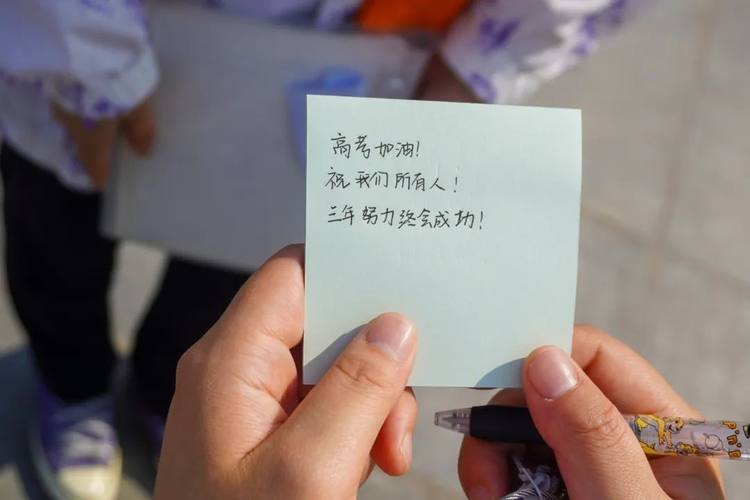 高考加油!
祝我们所有人!
三年努力终会成功!